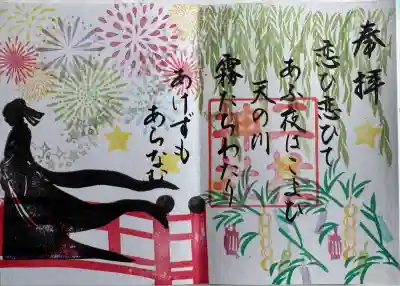 奉拝
恋ひ恋ひて
あふ夜はこよひ
天の川
霧たちわたり
あけずも
あらなむ